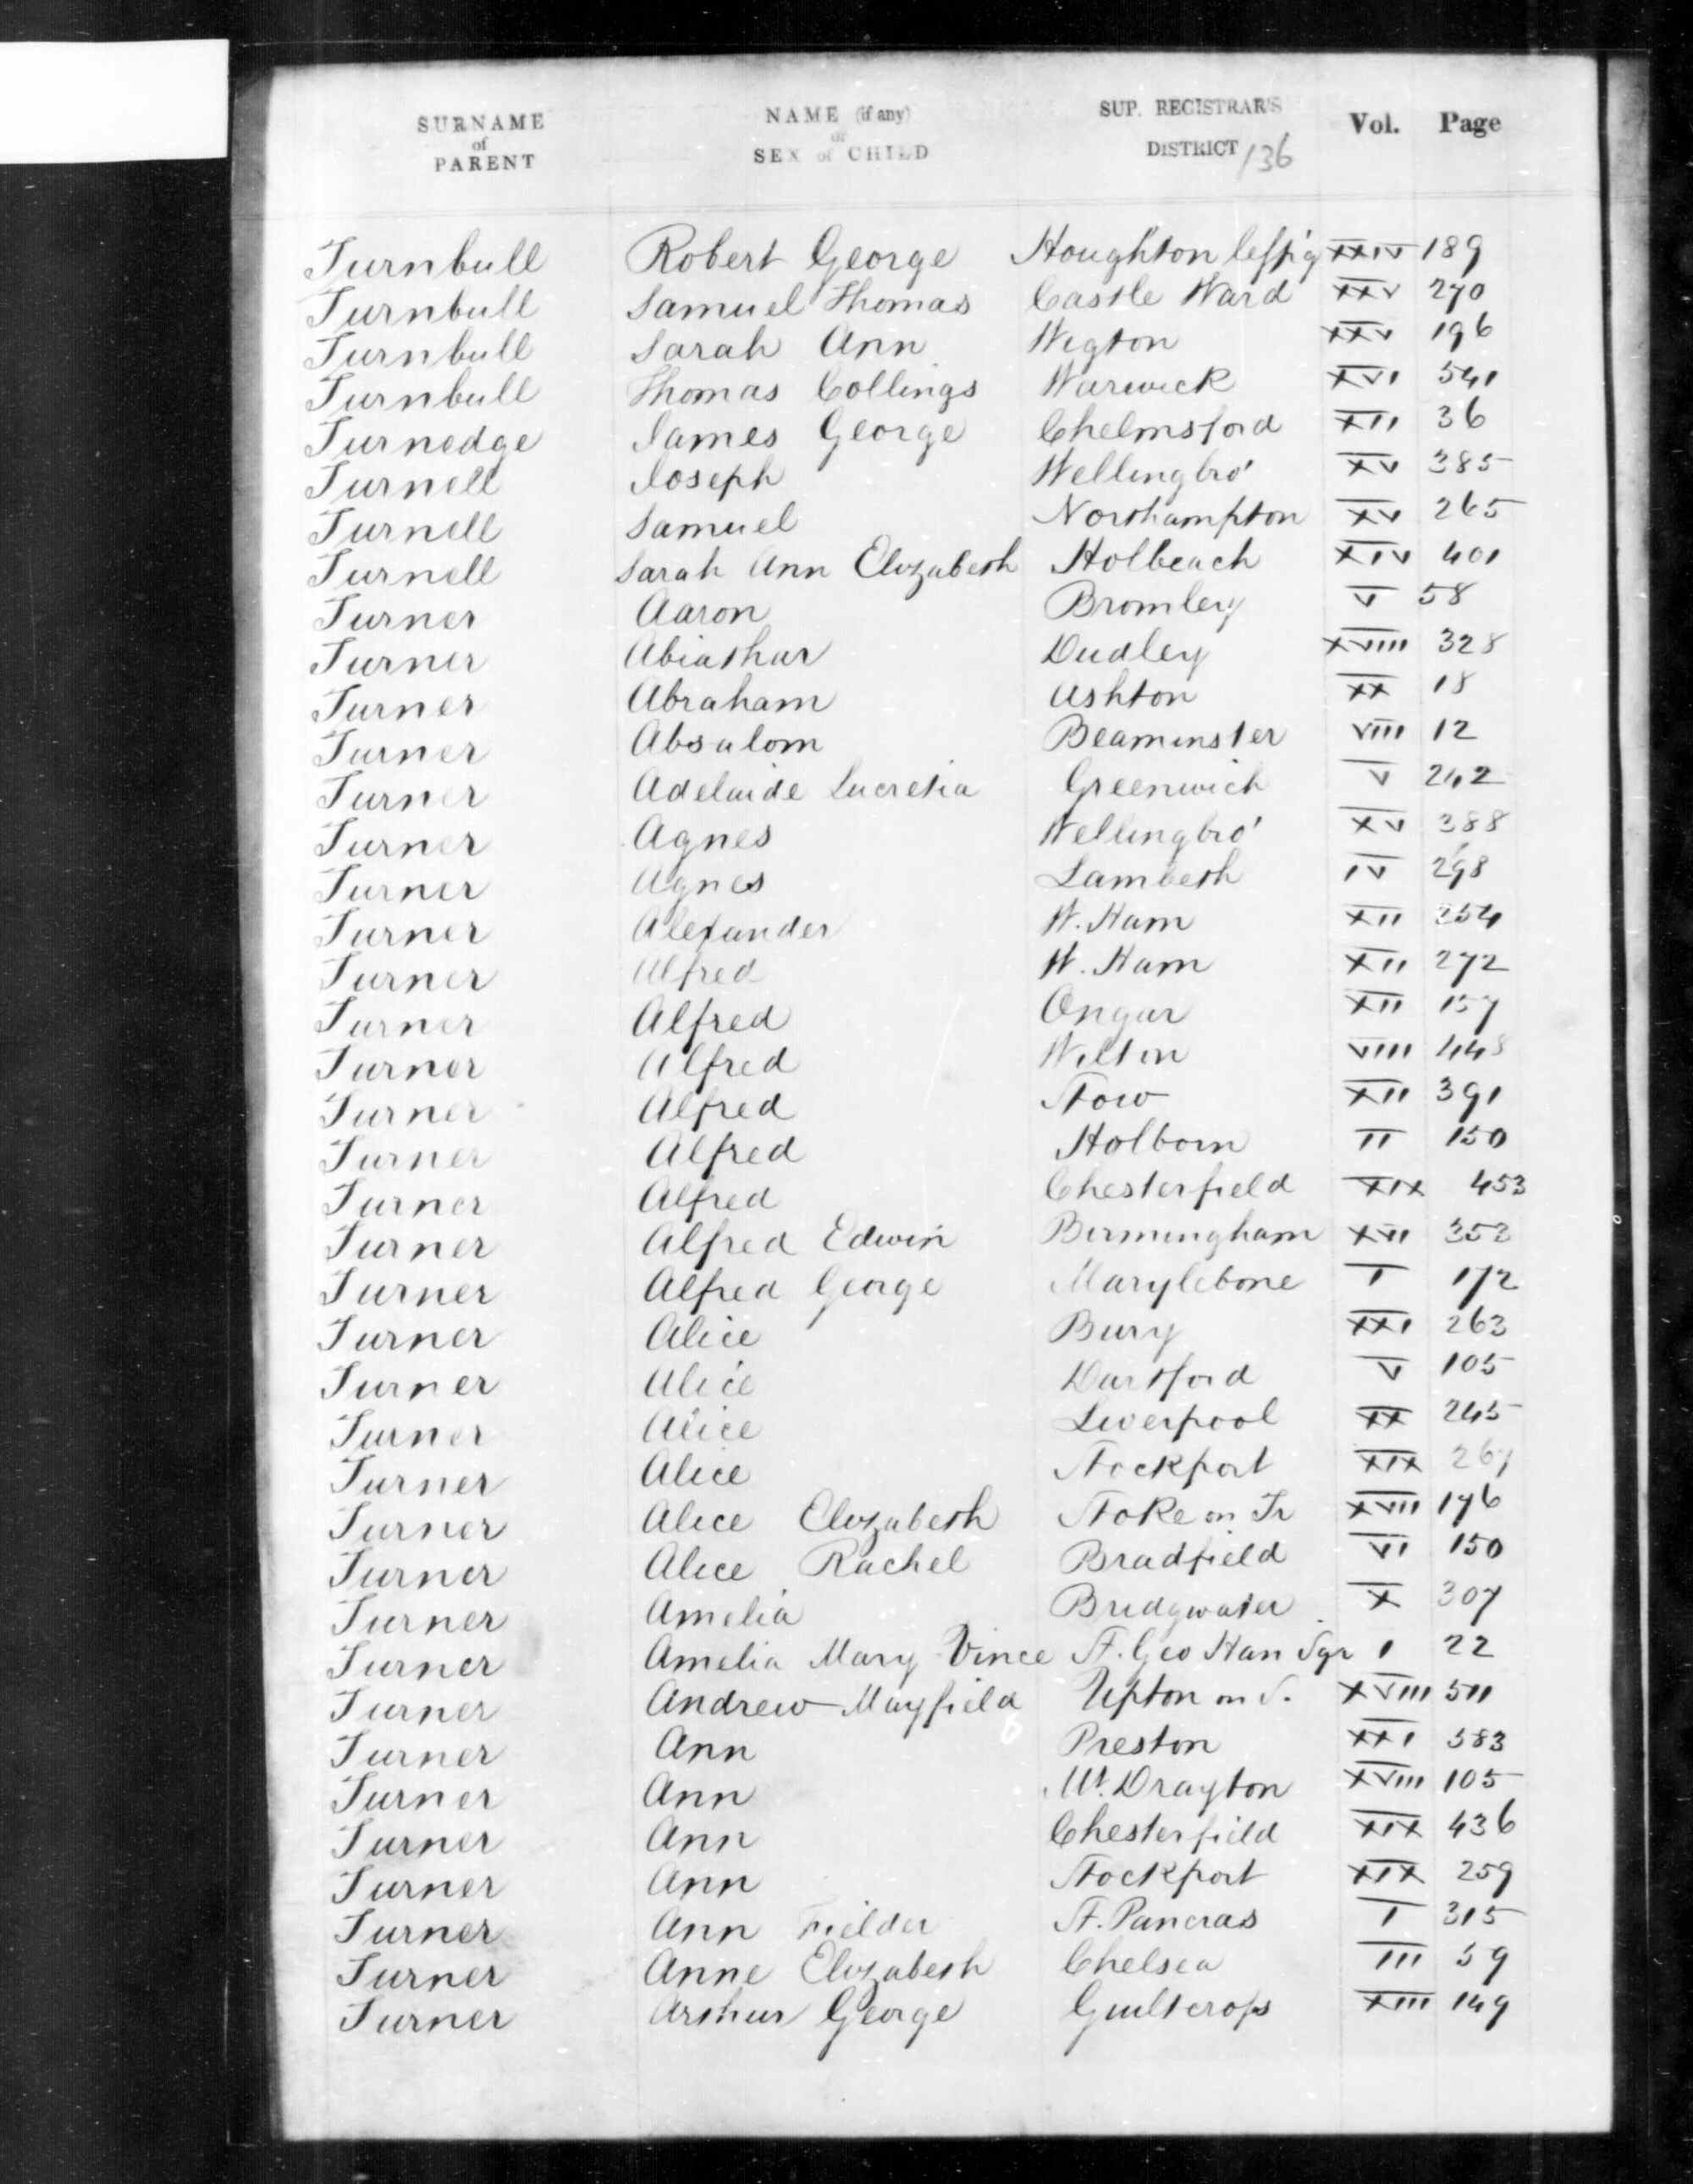 SURNAME of PARENT NAME (if any) or SEX of CHILD SUP. REGISTRAR'S DISTRICT 136 Vol. Page
Turnbull Robert George Houghton le Spg XXIV 189
Turnbull Samuel Thomas Castle Ward XXV 270
Turnbull Sarah Ann Wigton XXV 196
Turnbull Thomas Collings Warwick XVI 541
Turnedge James George Chelmsford XII 36
Turnell Joseph Wellingbro' XV 385
Turnell Samuel Northampton XV 265
Turnell Sarah Ann Elizabeth Holbeach XIV 401
Turner Aaron Bromley V 58
Turner Abiathar Dudley XVIII 328
Turner Abraham Ashton XX 18
Turner Absalom Beaminster VIII 12
Turner Adelaide Lucretia Greenwich V 242
Turner Agnes Wellingbro' XV 388
Turner Agnes Lambeth IV 298
Turner Alexander W. Ham XII 254
Turner Alfred W. Ham XII 272
Turner Alfred Ongar XII 157
Turner Alfred Wilton VIII 448
Turner Alfred Stow XII 391
Turner Alfred Holborn II 150
Turner Alfred Chesterfield XIX 453
Turner Alfred Edwin Birmingham XVI 353
Turner Alfred George Marylebone I 172
Turner Alice Bury XXI 263
Turner Alice Dartford V 105
Turner Alice Liverpool XX 245
Turner Alice Stockport XIX 267
Turner Alice Elizabeth Stoke on Tr XVIII 176
Turner Alice Rachel Bradfield VI 150
Turner Amelia Bridgwater X 307
Turner Amelia Mary Vince St. Geo Han Sqr I 22
Turner Andrew Mayfield Upton on S. XVIII 511
Turner Ann Preston XXI 583
Turner Ann Mt. Drayton XVIII 105
Turner Ann Chesterfield XIX 436
Turner Ann Stockport XIX 259
Turner Ann Fielder St. Pancras I 315
Turner Anne Elizabeth Chelsea III 59
Turner Arthur George Guiltcross XIII 149